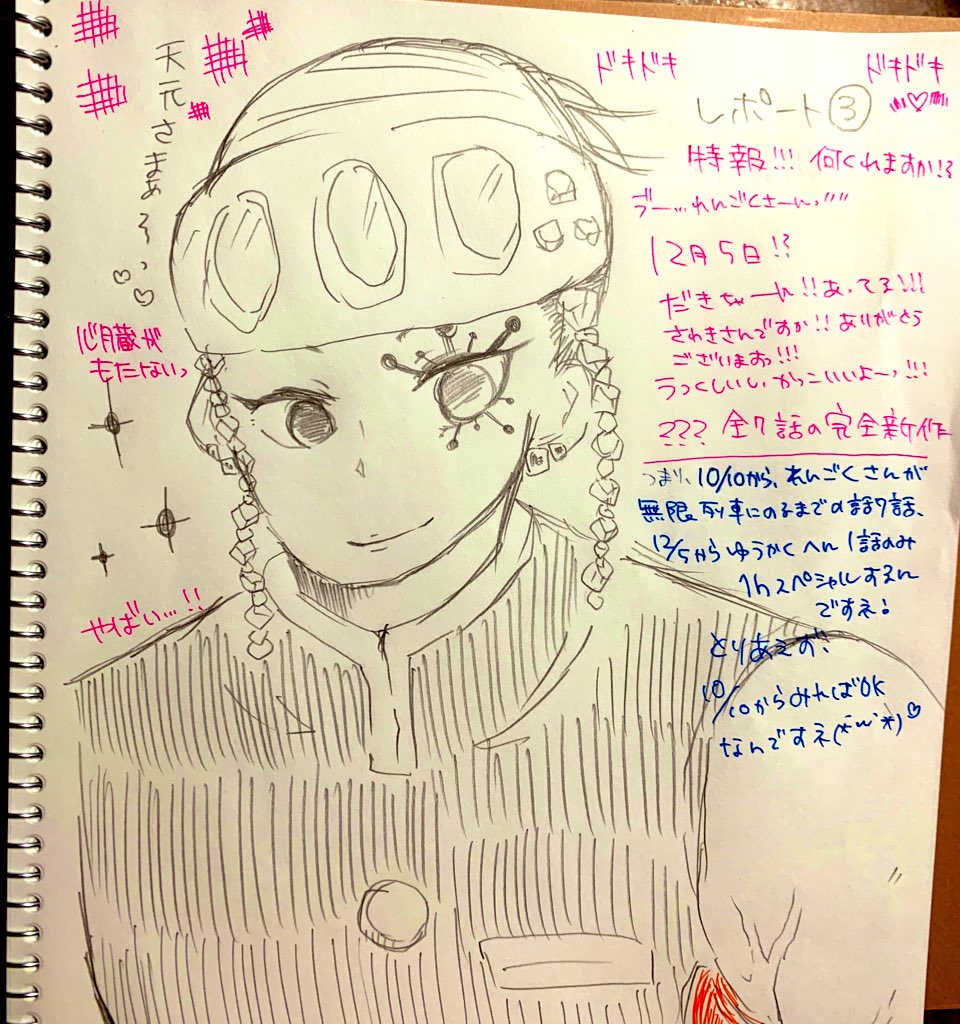 天元さまぁろっ
心臓が
もたないっ
やばい…!!
ドキドキ
ドキドキ
レポート③
特報!!! 何くれますか!?
ブー…れんごくさーんっ
12月5日!?
だきちゃーん!!あってる!!!
さわきさんですか!!ありがとう
ございますっ!!!
うつくしいしかっこいいよーっ!!!
??? 全7話の完全新作
つまり、10/10から、れんごくさんが
無限列車にのるまでの話7話、
12/5からゆうかくへん1話のみ
1hスペシャルすえん
ですえ!
とりあえず!
10/10からみればOK
なんですえ(*´w`*)♡